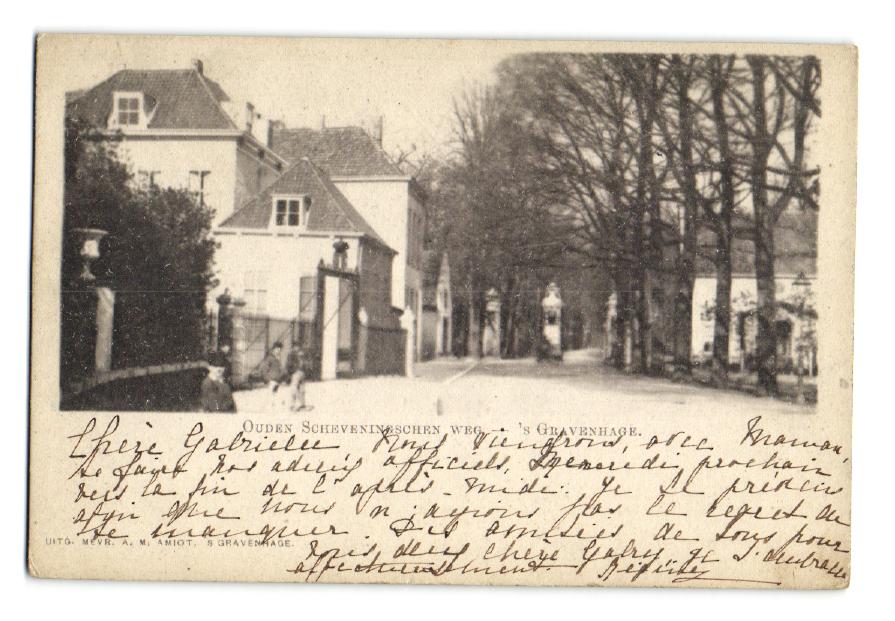 OUDEN SCHEVENINGSCHEN WEG — 'S GRAVENHAGE.
Chère Gabrielle Nous viendrons, avec Maman,
te faire nos adieux officiels, prochain
vers la fin de l'après-midi. Je te préviens
afin que nous n'ayons pas le regret de
te manquer. Des amitiés de tous pour
UITG. MEVR. A. M. AMIOT, 'S GRAVENHAGE.
vous deux chère Gabry je t'embrasse
affectueusement.